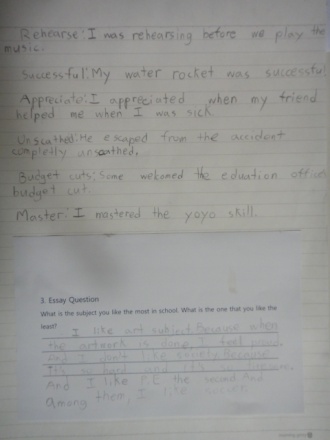 Rehearse: I was rehearsing before we play the
music.
Successful: My water rocket was successful
Appreciate: I appreciated when my friend
helped me when I was sick
Unscathed: He escaped from the accident
completly unscathed.
Budget cuts: Some welcomed the eduation office
budget cut.
Master: I mastered the yoyo skill.
3. Essay Question
What is the subject you like the most in school. What is the one that you like the
least?
I like art subject. Because when
the artwork is done, I feel proud.
And I don't like society. Because
It's so hard and it's so
And I like P.E the second. And
among them, I like soccer.